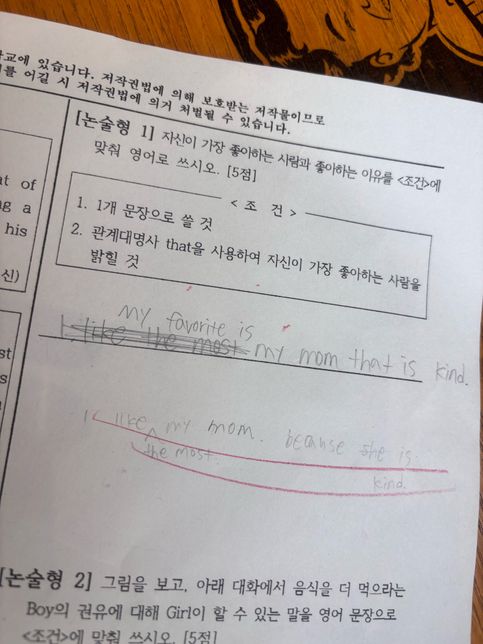 교에 있습니다. 저작권법에 의해 보호받는 저작물이므로
를 어길 시 저작권법에 의거 처벌될 수 있습니다.
[논술형 1] 자신이 가장 좋아하는 사람과 좋아하는 이유를 <조건>에
맞춰 영어로 쓰시오. [5점]
< 조 건 >
1. 1개 문장으로 쓸 것
2. 관계대명사 that을 사용하여 자신이 가장 좋아하는 사람을
밝힐 것
at of
ng a
his
신)
My favorite is
I like the most my mom that is kind.
st
s
I like my mom. because she is
the most.
kind.
[논술형 2] 그림을 보고, 아래 대화에서 음식을 더 먹으라는
Boy의 권유에 대해 Girl이 할 수 있는 말을 영어 문장으로
<조건>에 맞춰 쓰시오. [5점]